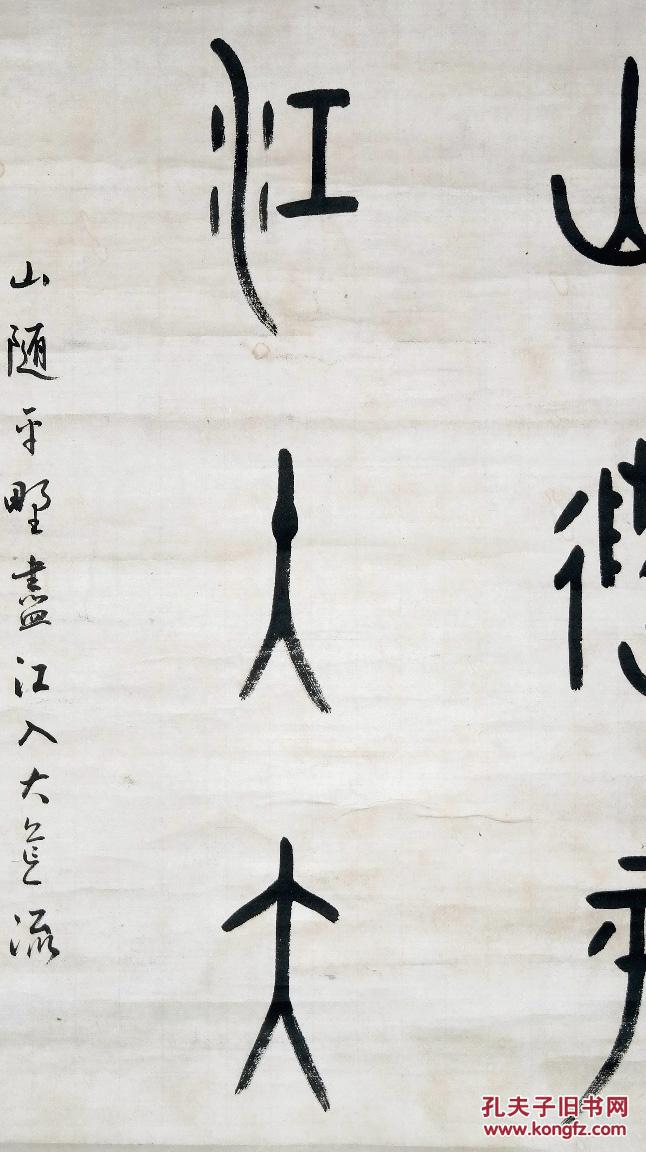 山隨平
江入大
山随平野盡江入大荒流
孔夫子旧书网
www.kongfz.com